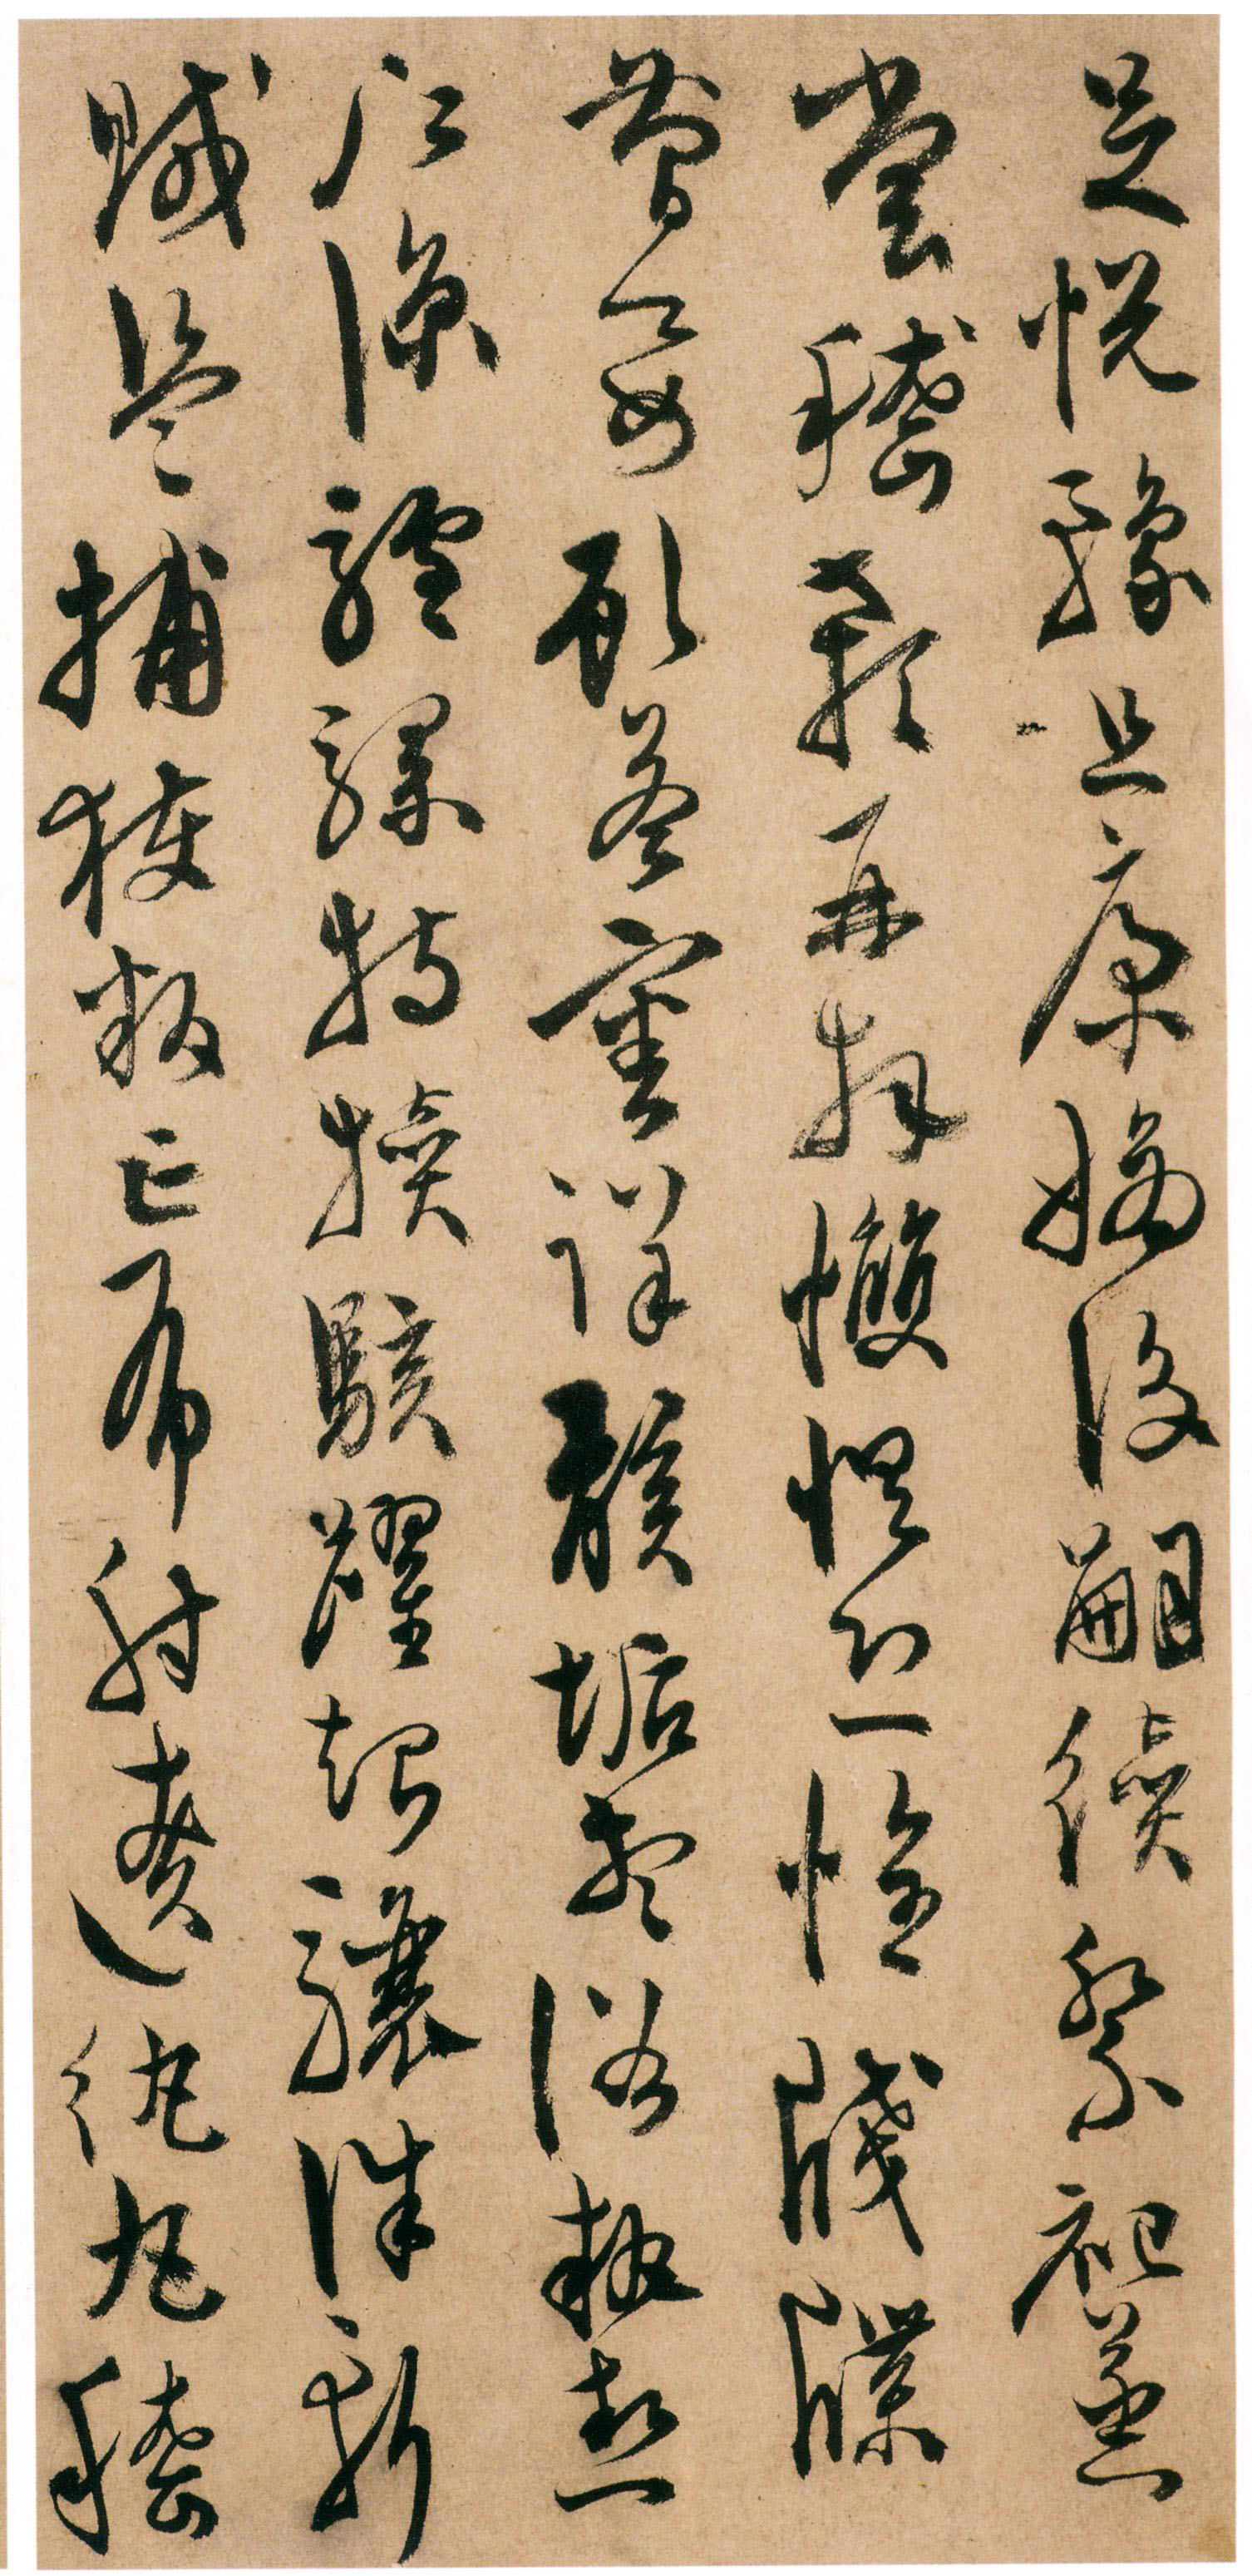 足悦豫且康嫡後嗣續祭祀蒸
嘗稽顙再拜悚懼恐惶牋牒
簡要顧答審詳骸垢想浴執熱
願涼驢騾犢特駭躍超驤誅斬
賊盜捕獲叛亡布射遼丸嵇